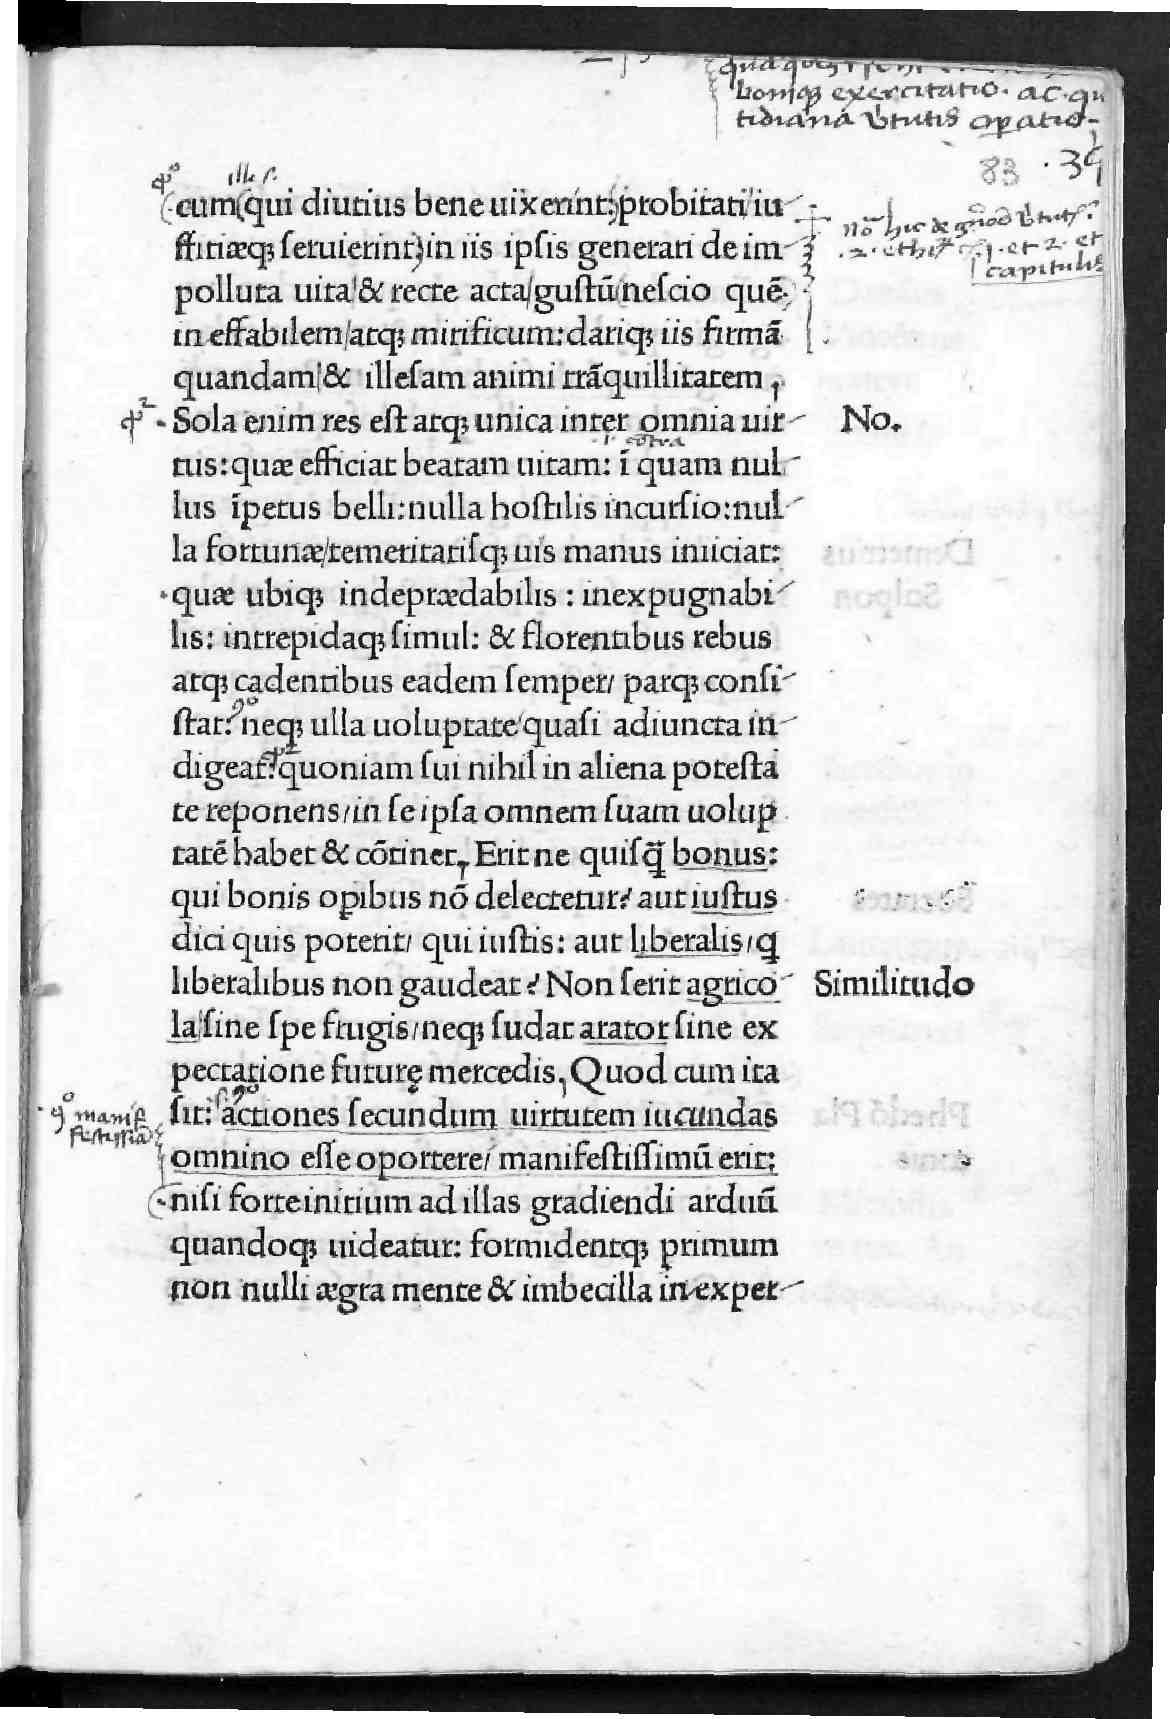 boniqꝫ exercitatio. ac qu
tidiana operatio
83 . 39
cum qui diutius bene uixerint: probitati iu
stitiæqꝫ seruierint in iis ipsis generari de im
polluta uita & recte acta/gustū nescio quē
ineffabilem/atqꝫ mirificum: dariqꝫ iis firmā
quandam & illesam animi trāquillitatem,
Sola enim res est atqꝫ unica inter omnia uir
No.
.i. cōtra
tus: quæ efficiat beatam uitam: ī quam nul
lus īpetus belli: nulla hostilis incursio: nul
la fortunæ/temeritatisqꝫ uis manus iniiciat:
quæ ubiqꝫ indeprædabilis : inexpugnabi
lis: intrepidaqꝫ simul: & florentibus rebus
atqꝫ cadentibus eadem semper/ parqꝫ consi
stat? neqꝫ ulla uoluptate quasi adiuncta in
digeat? quoniam sui nihil in aliena potesta
te reponens/in se ipsa omnem suam uolup
tatē habet & cōtinet, Erit ne quisq̄ bonus:
qui bonis opibus nō delectetur? aut iustus
dici quis poterit/ qui iustis: aut liberalis/q
liberalibus non gaudeat? Non serit agrico
Similitudo
la sine spe frugis/neqꝫ sudat arator sine ex
pectatione futurę mercedis, Quod cum ita
sit: actiones secundum uirtutem iucundas
omnino esse oportere/ manifestissimū erit:
nisi forte initium ad illas gradiendi arduū
quandoqꝫ uideatur: formidentqꝫ primum
non nulli ægra mente & imbecilla inexper